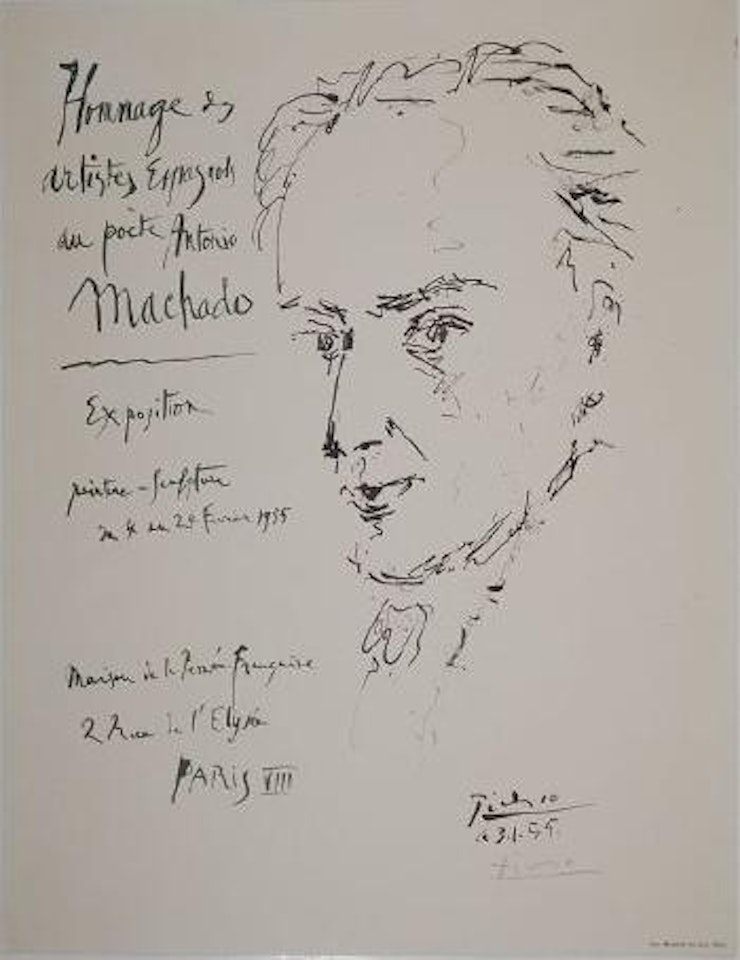 Hommage des
artistes Espagnols
au poète Antonio
Machado
Exposition
peinture - sculpture
du 4 au 20 février 1955
Maison de la Pensée Française
2 Rue de l'Elysée
PARIS VIII
Picasso
3.1.55.
Picasso